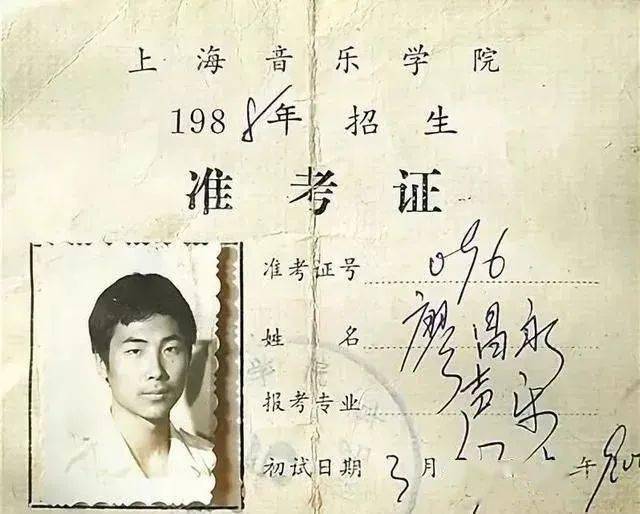 上海音乐学院
1988年招生
准考证
准考证号 096
姓名 廖昌永
报考专业 声乐
初试日期 3月 午